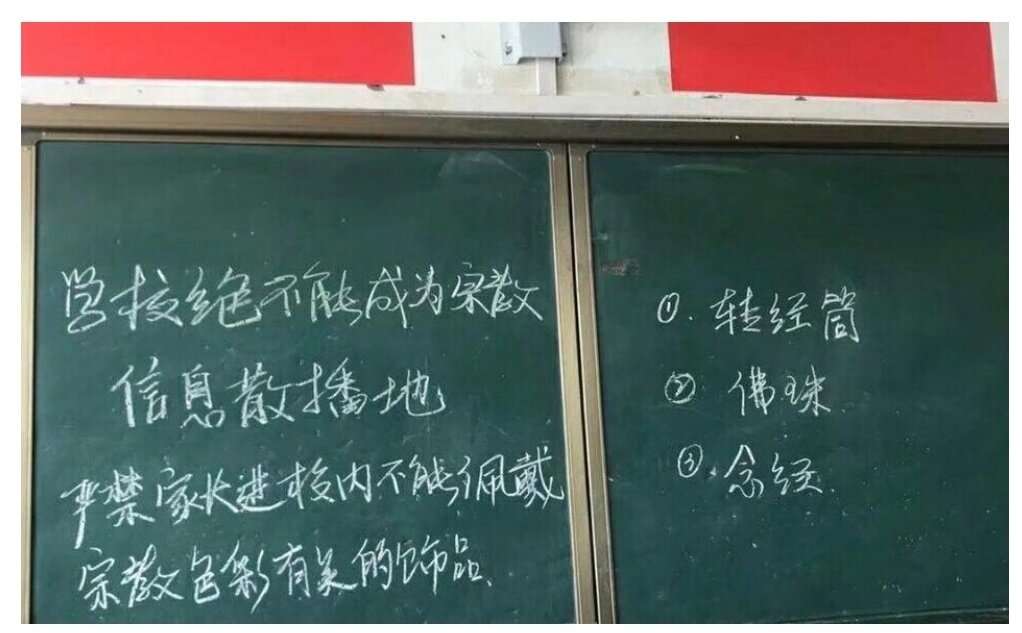 学校绝不能成为宗教
信息散播地
严禁家长进校内不能佩戴
宗教色彩有关的饰品、
①. 转经筒
② 佛珠
③、念经